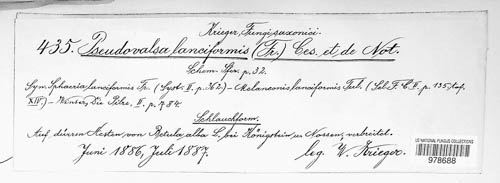 Krieger, Fungi saxonici.
435. Pseudovalsa lanciformis (Fr.) Ces. et de Not.
Schem. Sfer. p. 32.
Syn. Sphaeria lanciformis Fr. (Syst. II. p. 362.) – Melanconis lanciformis Tul. (Sel. F. C. II. p. 135, taf.
XIV.) – Winter, Die Pilze, II. p. 784.
Schlauchform.
Auf dürren Aesten von Betula alba L. bei Königstein u. Nossen, verbreitet.
Juni 1886, Juli 1887. leg. W. Krieger.
US NATIONAL FUNGUS COLLECTIONS
978688